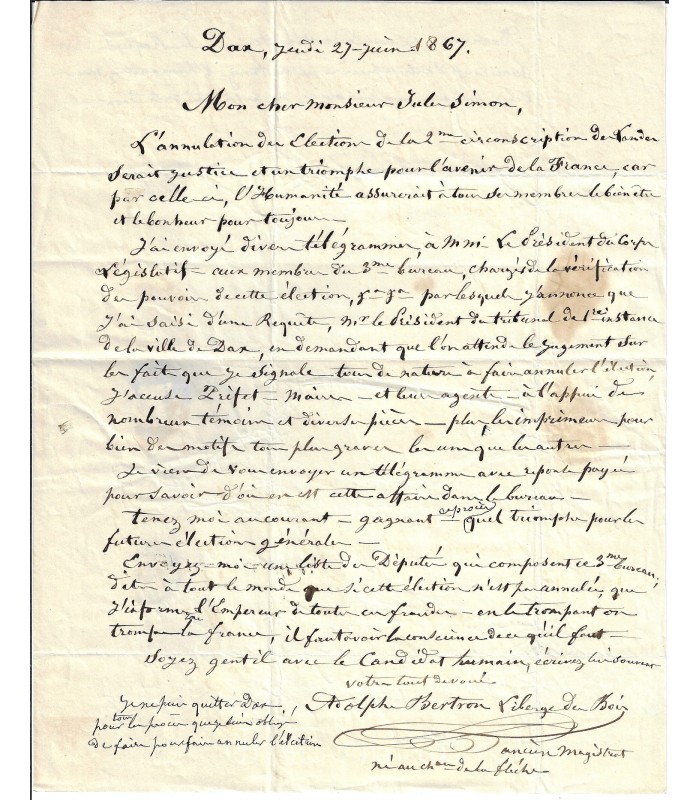 Dax, Jeudi 27 juin 1867.
Mon cher monsieur Jules Simon,
L'annulation des Elections de la 2me circonscription des Landes
serait justice et un triomphe pour l'avenir de la France, car
par celle-ci, l'Humanité assurerait à tous ses membres le bien être
et le bonheur pour toujours —
J'ai envoyé divers télégrammes à MMrs Le Président du Corps
Législatif — aux membres du 3me bureau, chargés de la vérification
des pouvoirs de cette élection, par lesquels j'annonce que
j'ai saisi d'une Requête, Mr le Président du tribunal de 1re instance
de la ville de Dax, en demandant que l'on attende le jugement sur
les faits que je signale tous de nature à faire annuler l'élection
J'accuse Préfet — Maires — et leurs agents — à l'appui de
nombreux témoins et diverses pièces — plus, les imprimeurs pour
bien des motifs tous plus graves les uns que les autres —
Je viens de vous envoyer un télégramme avec réponse payée
pour savoir d'où en est cette affaire dans le bureau —
tenez moi au courant — gagnant ce procès quel triomphe pour les
futures élections générales —
Envoyez-moi une liste des Députés qui composent ce 3me bureau,
dites à tout le monde que si cette élection n'est pas annulée, que
j'informe l'Empereur de toutes ces fraudes — en le trompant on
trompe la france, il faut avoir la conscience de ce qu'il faut —
Soyez gentil avec le Candidat humain, écrivez lui souvent
votre tout dévoué
Adolphe Bertron Liberge du Bois
ancien magistrat
né au chau de la flèche
Je ne puis quitter Dax,
pour tous les procès que je suis obligé
de faire pour faire annuler l'élection